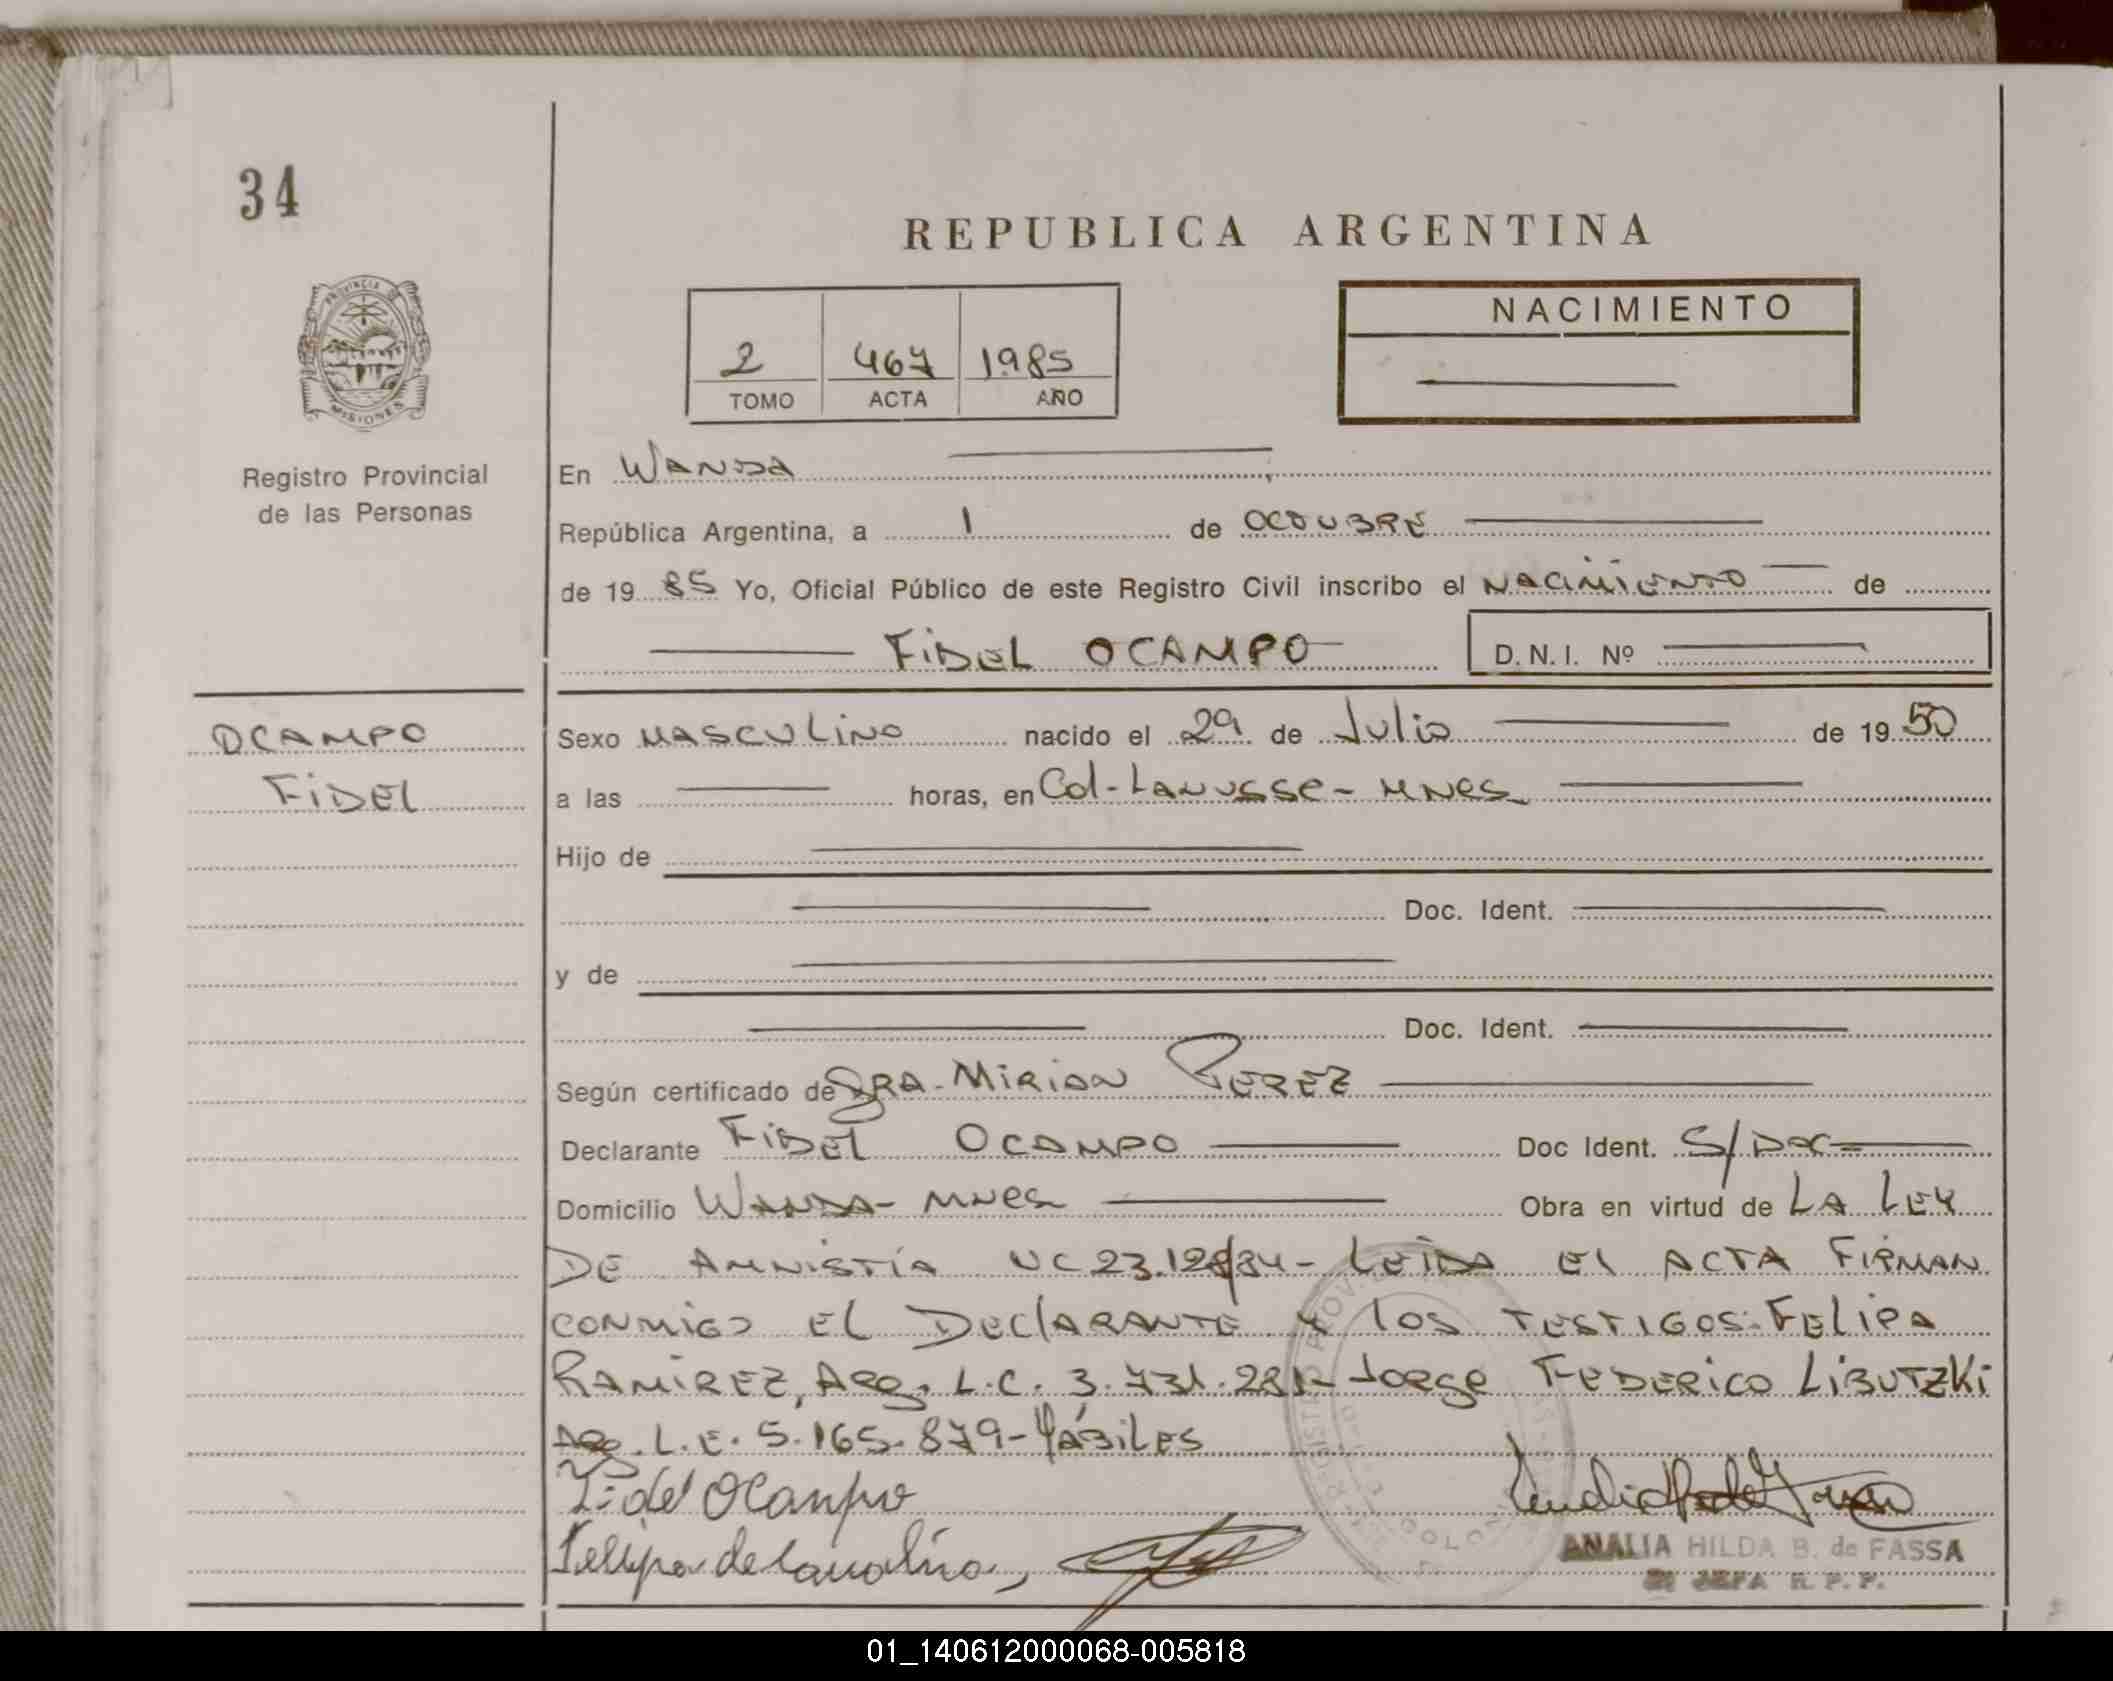 34
REPUBLICA ARGENTINA
PROVINCIA DE
MISIONES
Registro Provincial
de las Personas
2 467 1985
TOMO ACTA AÑO
NACIMIENTO
En WANDA
República Argentina, a 1 de OCTUBRE
de 19 85 Yo, Oficial Público de este Registro Civil inscribo el NACIMIENTO de
FIDEL OCAMPO D.N.I. Nº
OCAMPO
FIDEL
Sexo MASCULINO nacido el 29 de Julio de 19 50
a las horas, en Col-Lanusse-MNES
Hijo de
Doc. Ident.
y de
Doc. Ident.
Según certificado de DRA-MIRIAN PEREZ
Declarante FIDEL OCAMPO Doc Ident. S/DOC
Domicilio WANDA-MNES Obra en virtud de LA LEY
DE AMNISTÍA 23.128/84- LEIDA EL ACTA FIRMAN
CONMIGO EL DECLARANTE Y LOS TESTIGOS: FELIPA
RAMIREZ, Arg. L.C. 3.731.281- Jorge FEDERICO LIBUTZKI
Arg. L.E. 5.165.879-HÁBILES
Fidel Ocampo
Felipa de
ANALIA HILDA B. de FASSA
JEFA R.P.P.
01_140612000068-005818